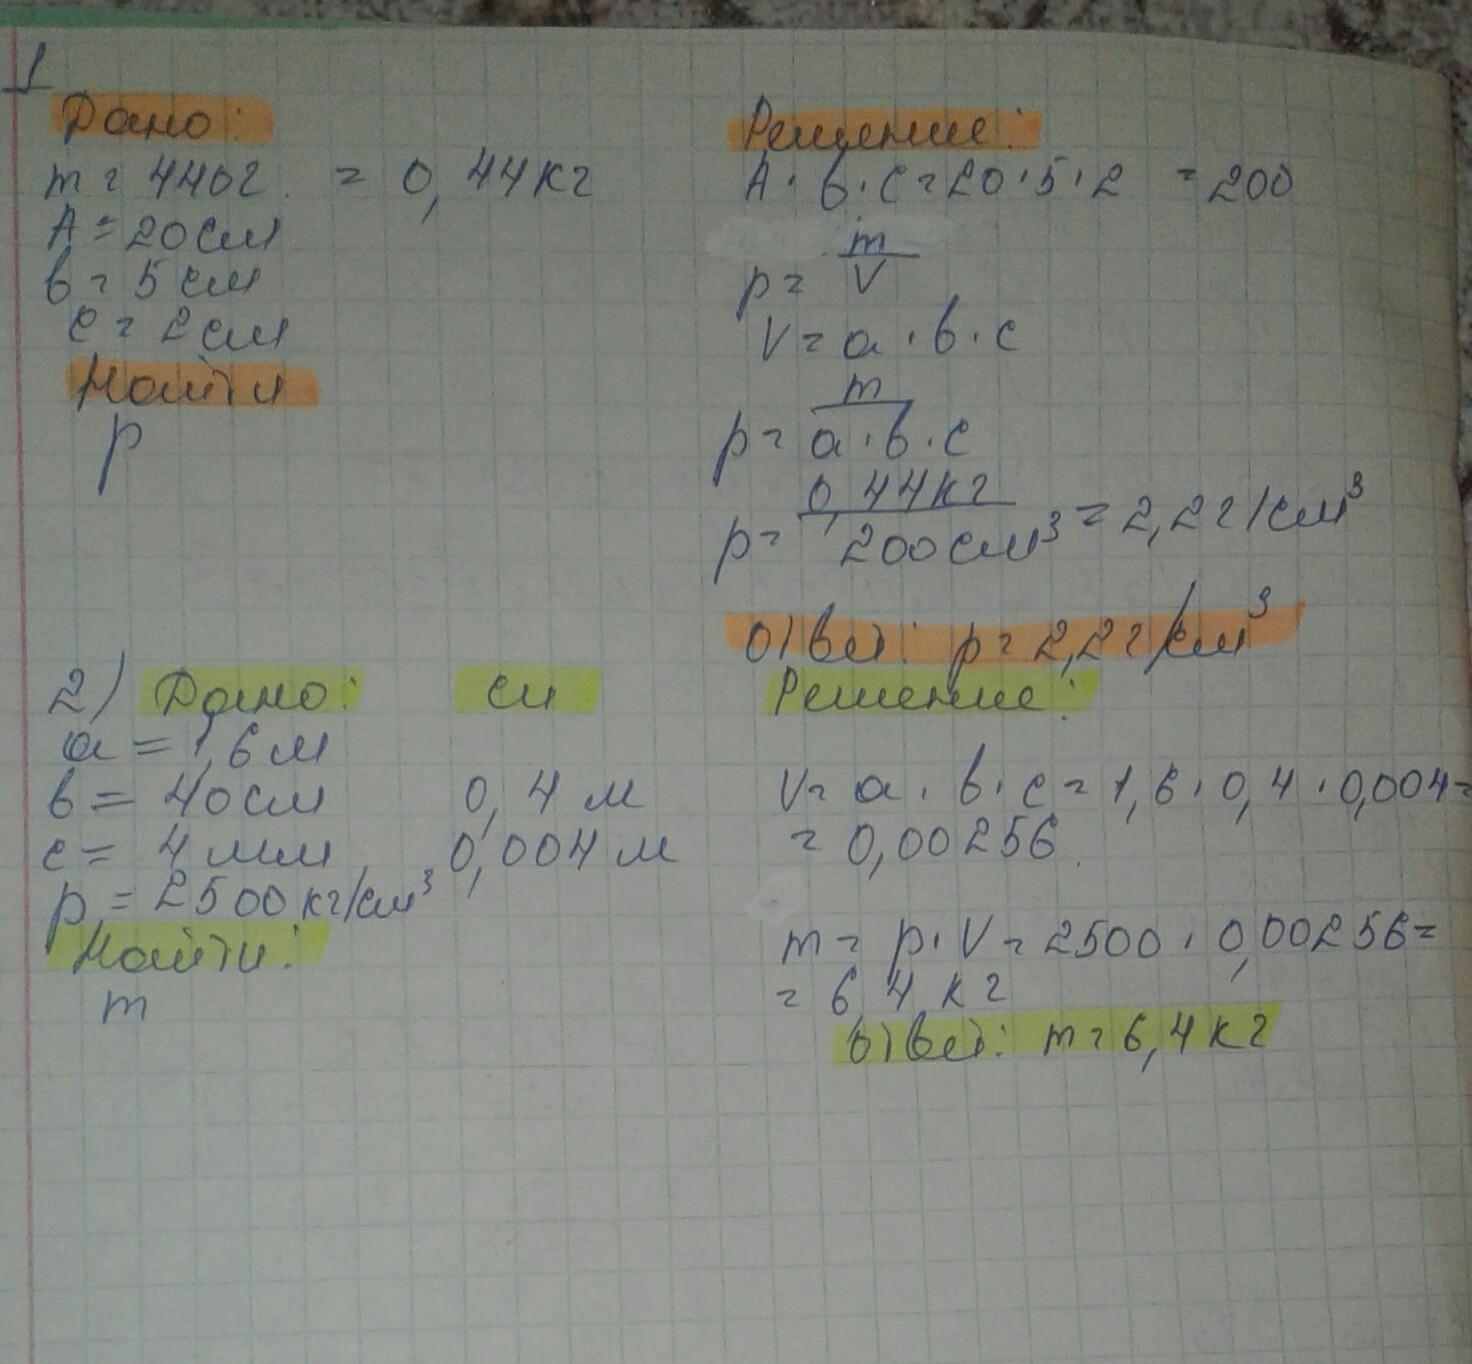 1
Дано:
m = 440г. = 0,44кг
A = 20см
b = 5 см
c = 2см
Найти
p
Решение:
A · b · c = 20 · 5 · 2 = 200
p = m/V
V = a · b · c
p = m/a · b · c
p = 0,44кг/200см³ = 2,2г/см³
Ответ: p = 2,2г/см³
2) Дано: си
a = 1,6м
b = 40см 0,4 м
c = 4 мм 0,004 м
p = 2500кг/см³
Найти:
m
Решение:
V = a · b · c = 1,6 · 0,4 · 0,004 =
= 0,00256
m = p · V = 2500 · 0,00256 =
= 6,4 кг
Ответ: m = 6,4кг